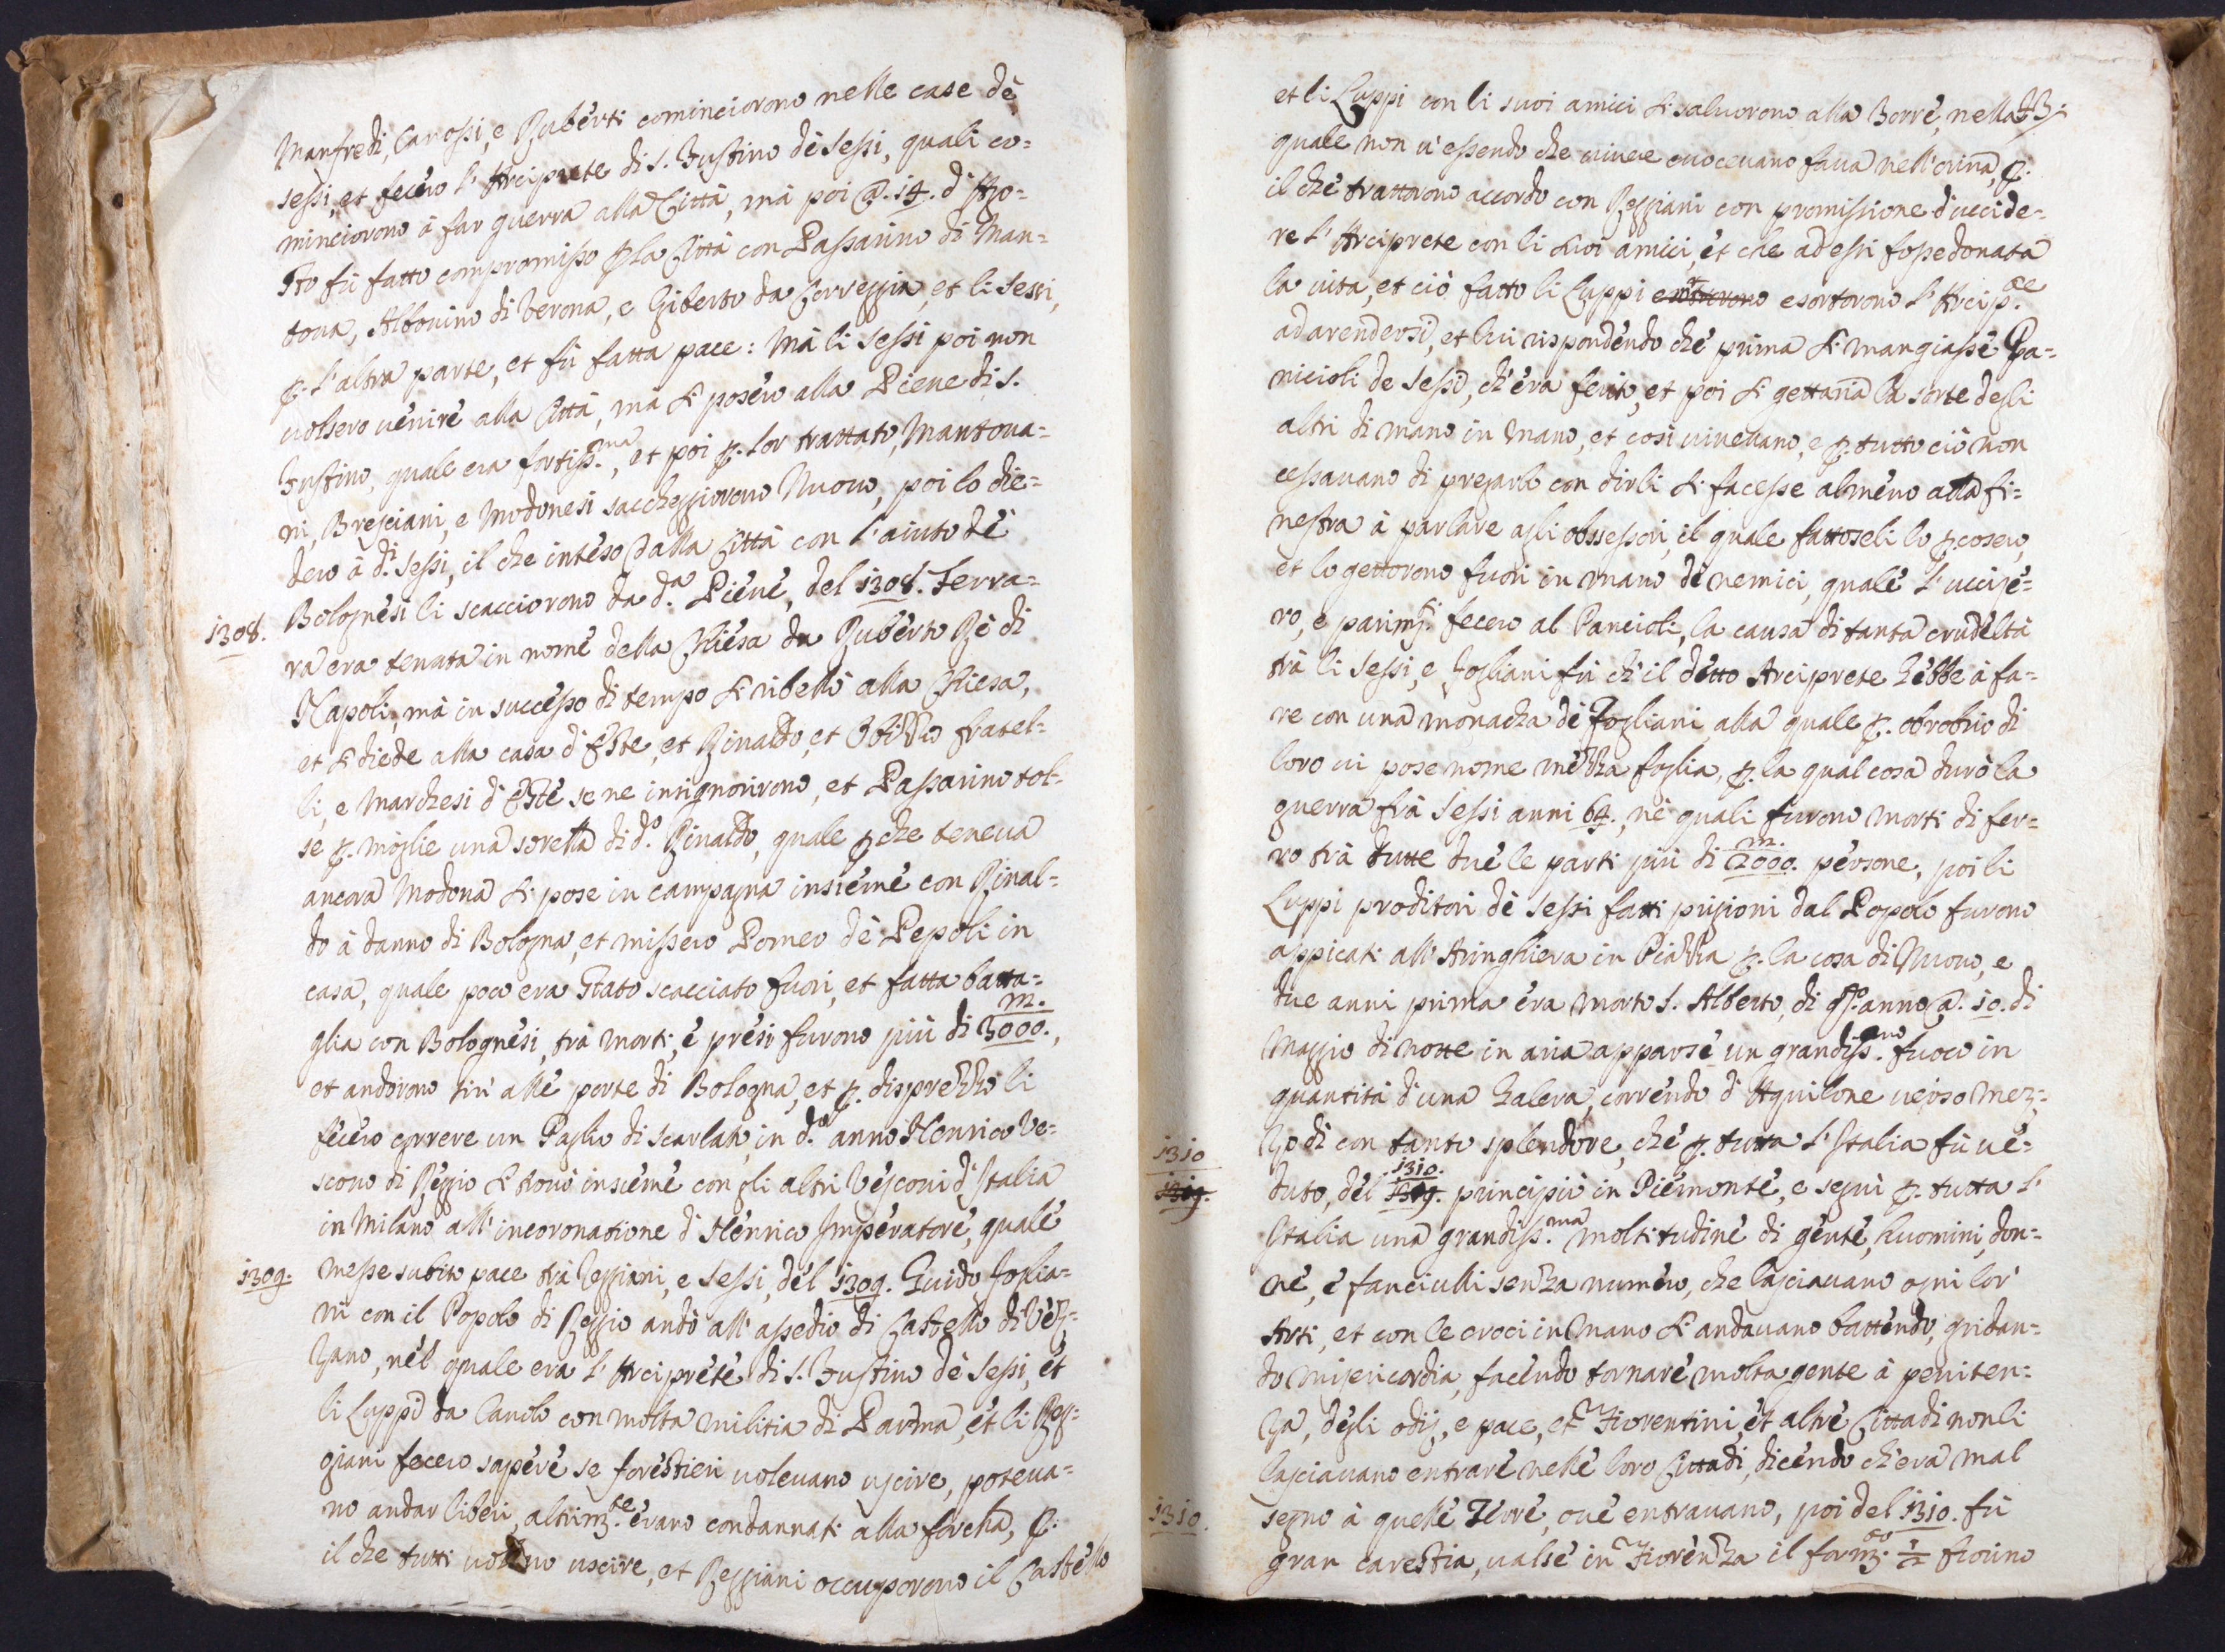 Manfredi, Canossi, e Ruberti cominciorono nelle case dè
sessi, et fecero l'Arciprete di s. Justino dè sessi, quali co=
minciorono à far guerra alla Città, mà poi @. 14. d'Ago=
sto fù fatto compromisso p. la Città con Passarino di Man=
toua, Albouino di Verona, e Giberto da Correggia, et li sessi,
p. l'altra parte, et fù fatta pace: Mà li sessi poi non
uolsero uenire alla Città, mà si posero alla Pieue di s.
Justino, quale era fortiss.ma, et poi p. lor trattato, Mantoua=
ni, Bresciani, e Modonesi saccheggiorono Nuouo, poi lo die=
dero à d.i sessi, il che inteso dalla Città con l'aiuto dè
1308. Bolognesi li scacciorono da d.a Pieue, del 1308. Ferra=
ra era tenuta in nome della Chiesa da Ruberto Rè di
Napoli, mà in successo di tempo si ribellò alla Chiesa,
et si diede alla casa d'Este, et Rinaldo, et Obizzo fratel=
li, e Marchesi d'Este se ne insignorirono, et Passarino tol=
se p. moglie una sorella di d.o Rinaldo, quale p. che teneua
ancora Modona si pose in campagna insieme con Rinal=
do à danno di Bologna, et missero Romeo dè Pepoli in
casa, quale poco era stato scacciato fuori, et fatta batta=
glia con Bolognesi, trà morti, e presi furono più di 3000. m.,
et andorono sin' alle porte di Bologna, et p. disprezzo li
fecero correre un Paglio di scarlato, in d.o anno Henrico Ve=
scouo di Reggio si trouò insieme con gli altri Vescoui d'Italia
in Milano all'incoronatione d'Henrico Imperatore, quale
1309. messe subito pace trà Reggiani, e sessi, del 1309. Guido Foglia=
ni con il Popolo di Reggio andò all'assedio di Castello di Vez=
zano, nel quale era l'Arciprete di s. Justino dè sessi, et
li Luppi da Canolo con molta militia di Parma, et li Reg=
giani fecero sapere se forestieri uoleuano uscire, poteua=
no andar liberi, altrim.te erano condannati alla forcha, p.
il che tutti uolsero uscire, et Reggiani occuporono il Castello
et li Luppi con li suoi amici si saluorono alla Torre, nella 33.
quale non u'essendo che uiuere cuoceuano faua nell'orina, p.
il che trattorono accordo con Reggiani con promissione d'uccide=
re l'Arciprete con li suoi amici, et che ad essi fosse donata
la uita, et ciò fatto li Luppi esortorono l'Arcip.te
ad arendersi, et lui rispondendo che prima si mangiasse Pa=
nicioli de sessi, ch'era ferito, et poi si gettaria la sorte degli
altri di mano in mano, et così uiueuano, e p. tutto ciò non
cessauano di pregarlo con dirli si facesse almeno alla fi=
nestra à parlare agli obssessori, il quale fattoseli lo p.cosero,
et lo gettorono fuori in mano dè nemici, quale l'uccise=
ro, e parim.ti fecero al Pancioli, la causa di tanta crudeltà
trà li sessi, e Fogliani fù ch'il detto Arciprete hebbe à fa=
re con una monacha dè Fogliani, alla quale p. obrobrio di
loro ui pose nome mezza foglia, p. la qual cosa durò la
guerra frà sessi anni 64., nè quali furono morti di fer=
ro trà tutte due le parti più di 2000. m. persone, poi li
Luppi proditori dè sessi fatti prigioni dal Popolo furono
appicati all'Aringhiera in Piazza p. la cosa di Nuouo, e
due anni prima era morto s. Alberto, di q.sto anno @. 10. di
Maggio di notte in aria apparse un grandiss.mo fuoco in
quantità d'una Galera, correndo d'Aquilone uerso Mez=
1310 zo dì con tanto splendore, che p. tutta l'Italia fù ue=
duto, del 1310. principiò in Piemonte, e seguì p. tutta l'
Italia una grandiss.ma moltitudine di gente, huomini, don=
ne, e fanciulli senza numero, che lasciauano ogni lor'
Arti, et con le croci in mano si andauano battendo, gridan=
do misericordia, facendo tornare molta gente à peniten=
za, degli odij, e pace, et Fiorentini, et altre Cittadi non li
lasciauano entrare nelle loro Cittadi, dicendo ch'era mal
1310. segno à quelle Terre, oue entrauano, poi del 1310. fù
gran carestia, ualse in Fiorenza il form.to 1/2 fiorino